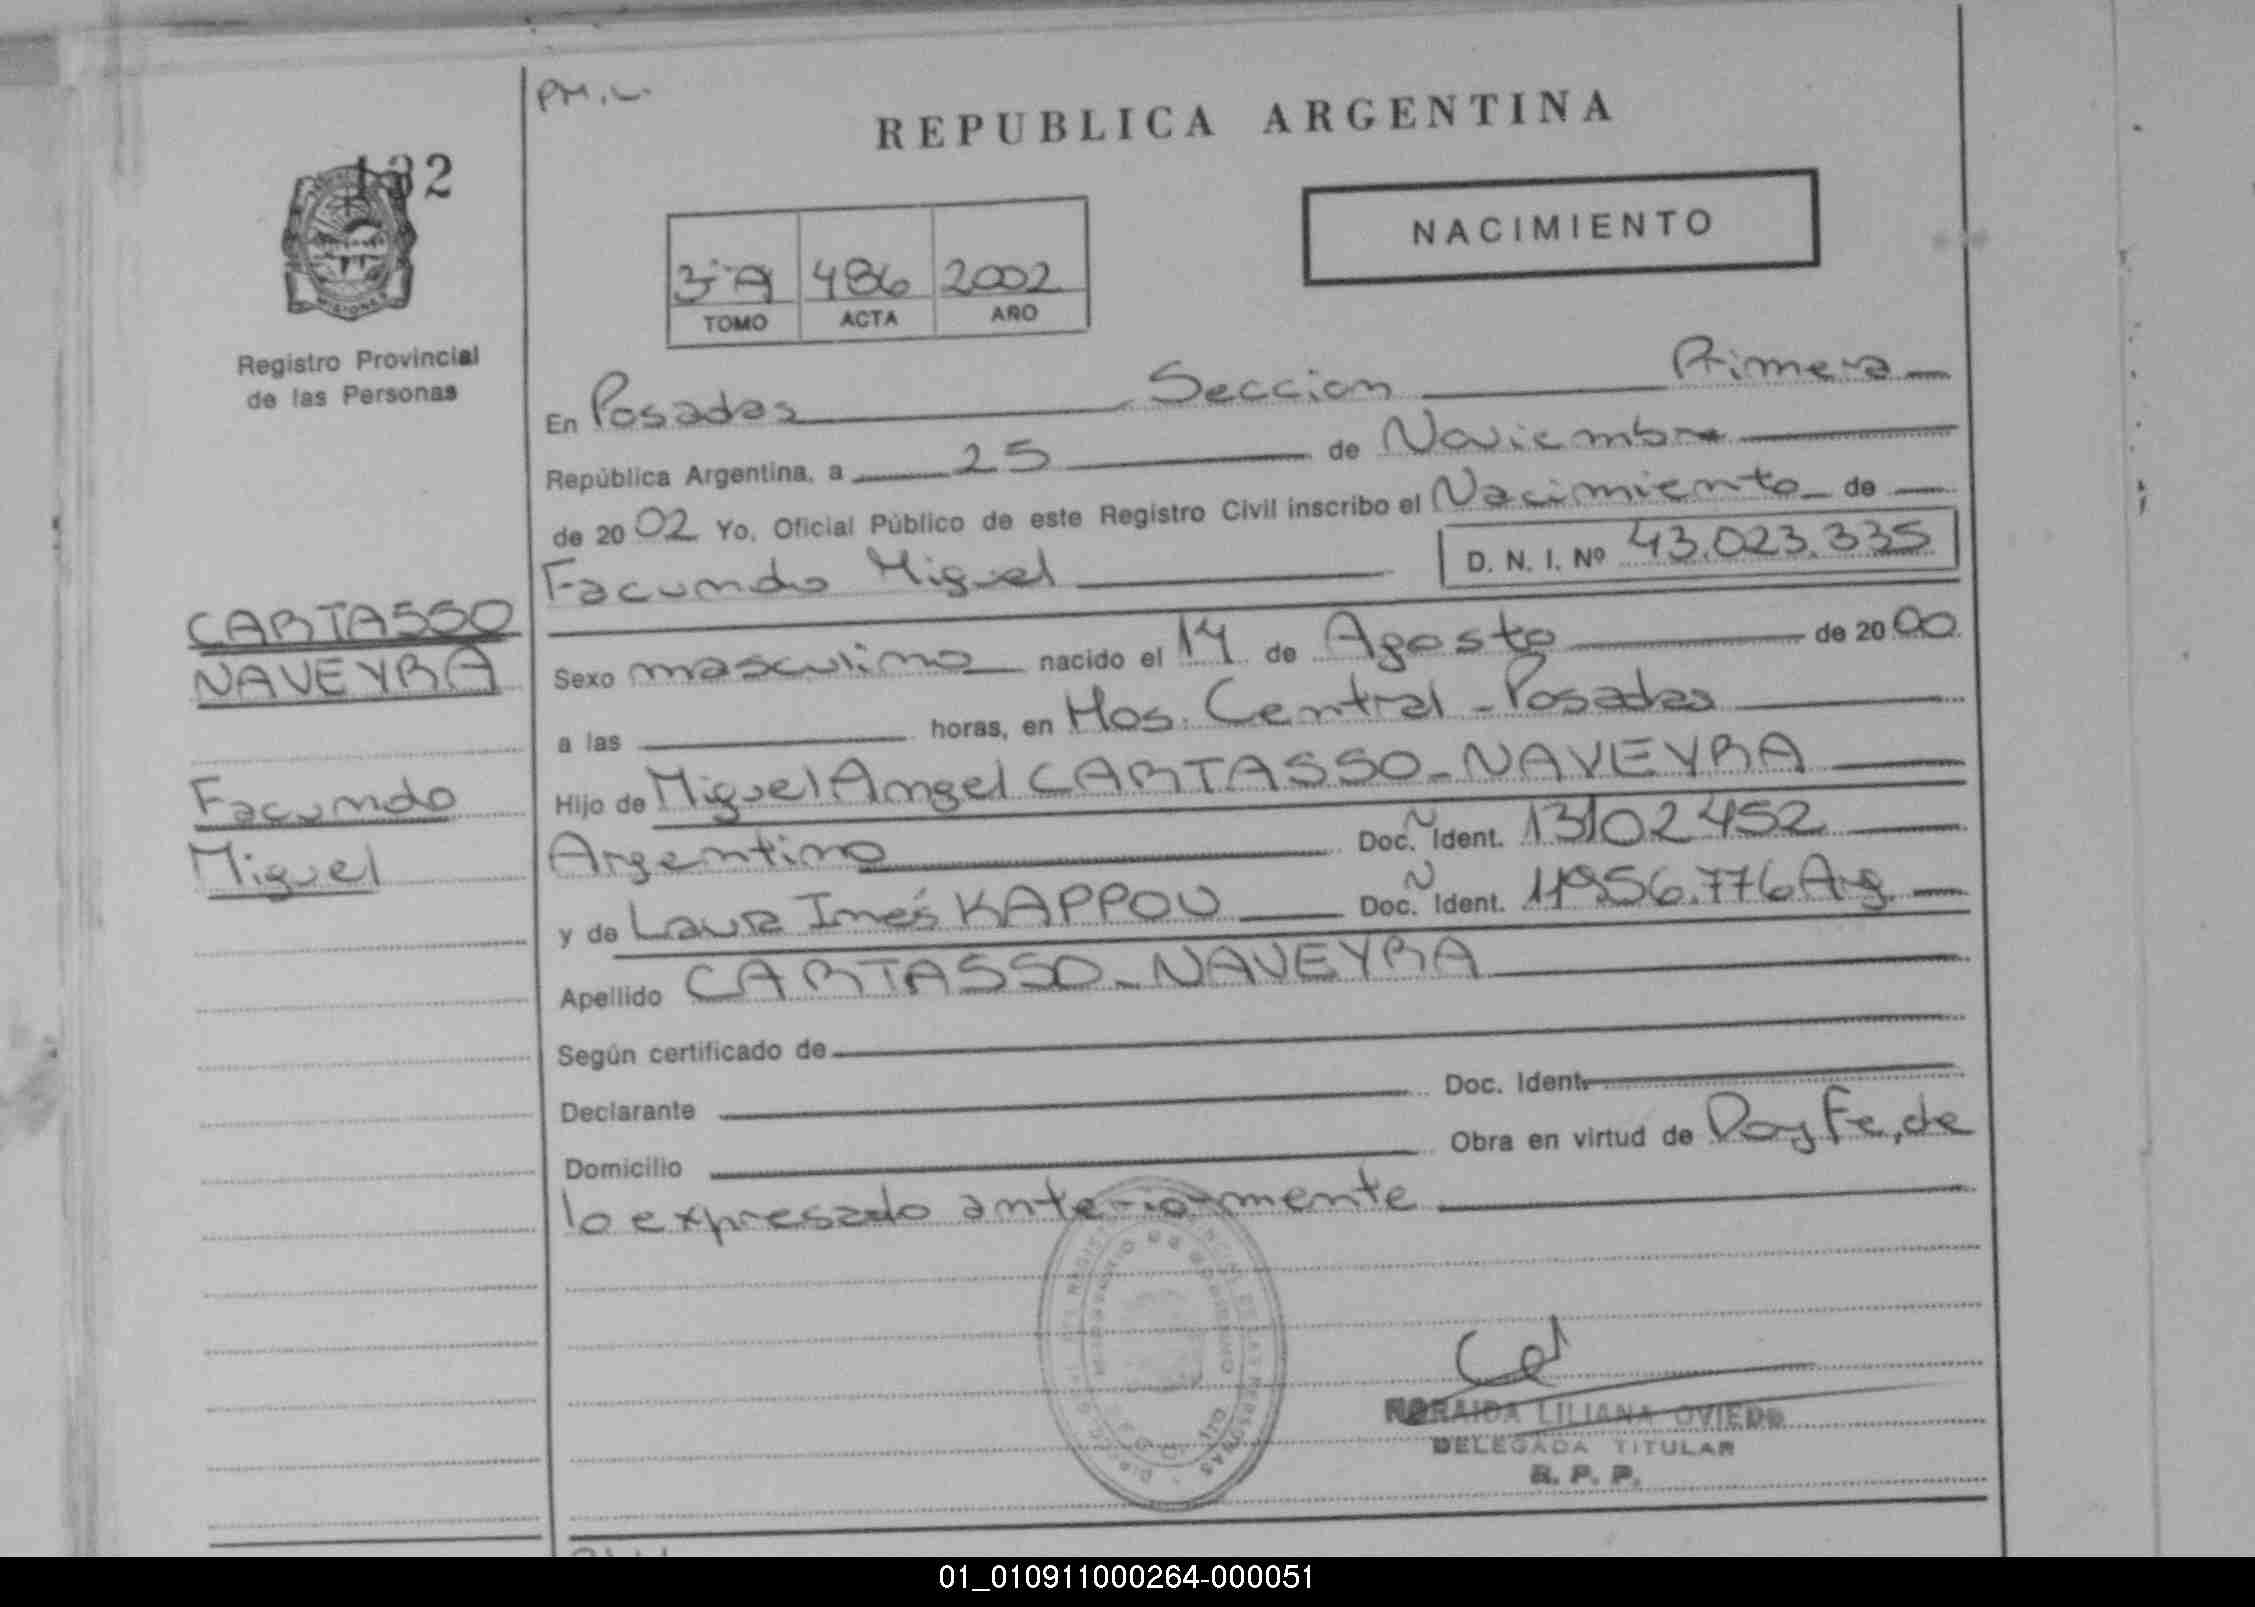 PM.L.
132
REPUBLICA ARGENTINA
NACIMIENTO
3º A 486 2002
TOMO ACTA AÑO
Registro Provincial
de las Personas
En Posadas Seccion Primera
República Argentina, a 25 de Noviembre
de 2002 Yo, Oficial Público de este Registro Civil inscribo el Nacimiento de
Facundo Miguel D. N. I. Nº 43.023.335
CARTASSO
NAVEYRA
Facundo
Miguel
Sexo masculino nacido el 14 de Agosto de 2000
a las horas, en Hos. Central - Posadas
Hijo de Miguel Angel CARTASSO - NAVEYRA
Argentino Doc. N Ident. 13102452
y de Laura Inés Doc. N Ident. 11956.776 Arg
Apellido CARTASSO - NAVEYRA
Según certificado de
Declarante Doc. Ident.
Domicilio Obra en virtud de Doy Fe, de
lo expresado anteriormente
LILIANA OVIEDO
DELEGADA TITULAR
R. P. P.
01_010911000264-000051